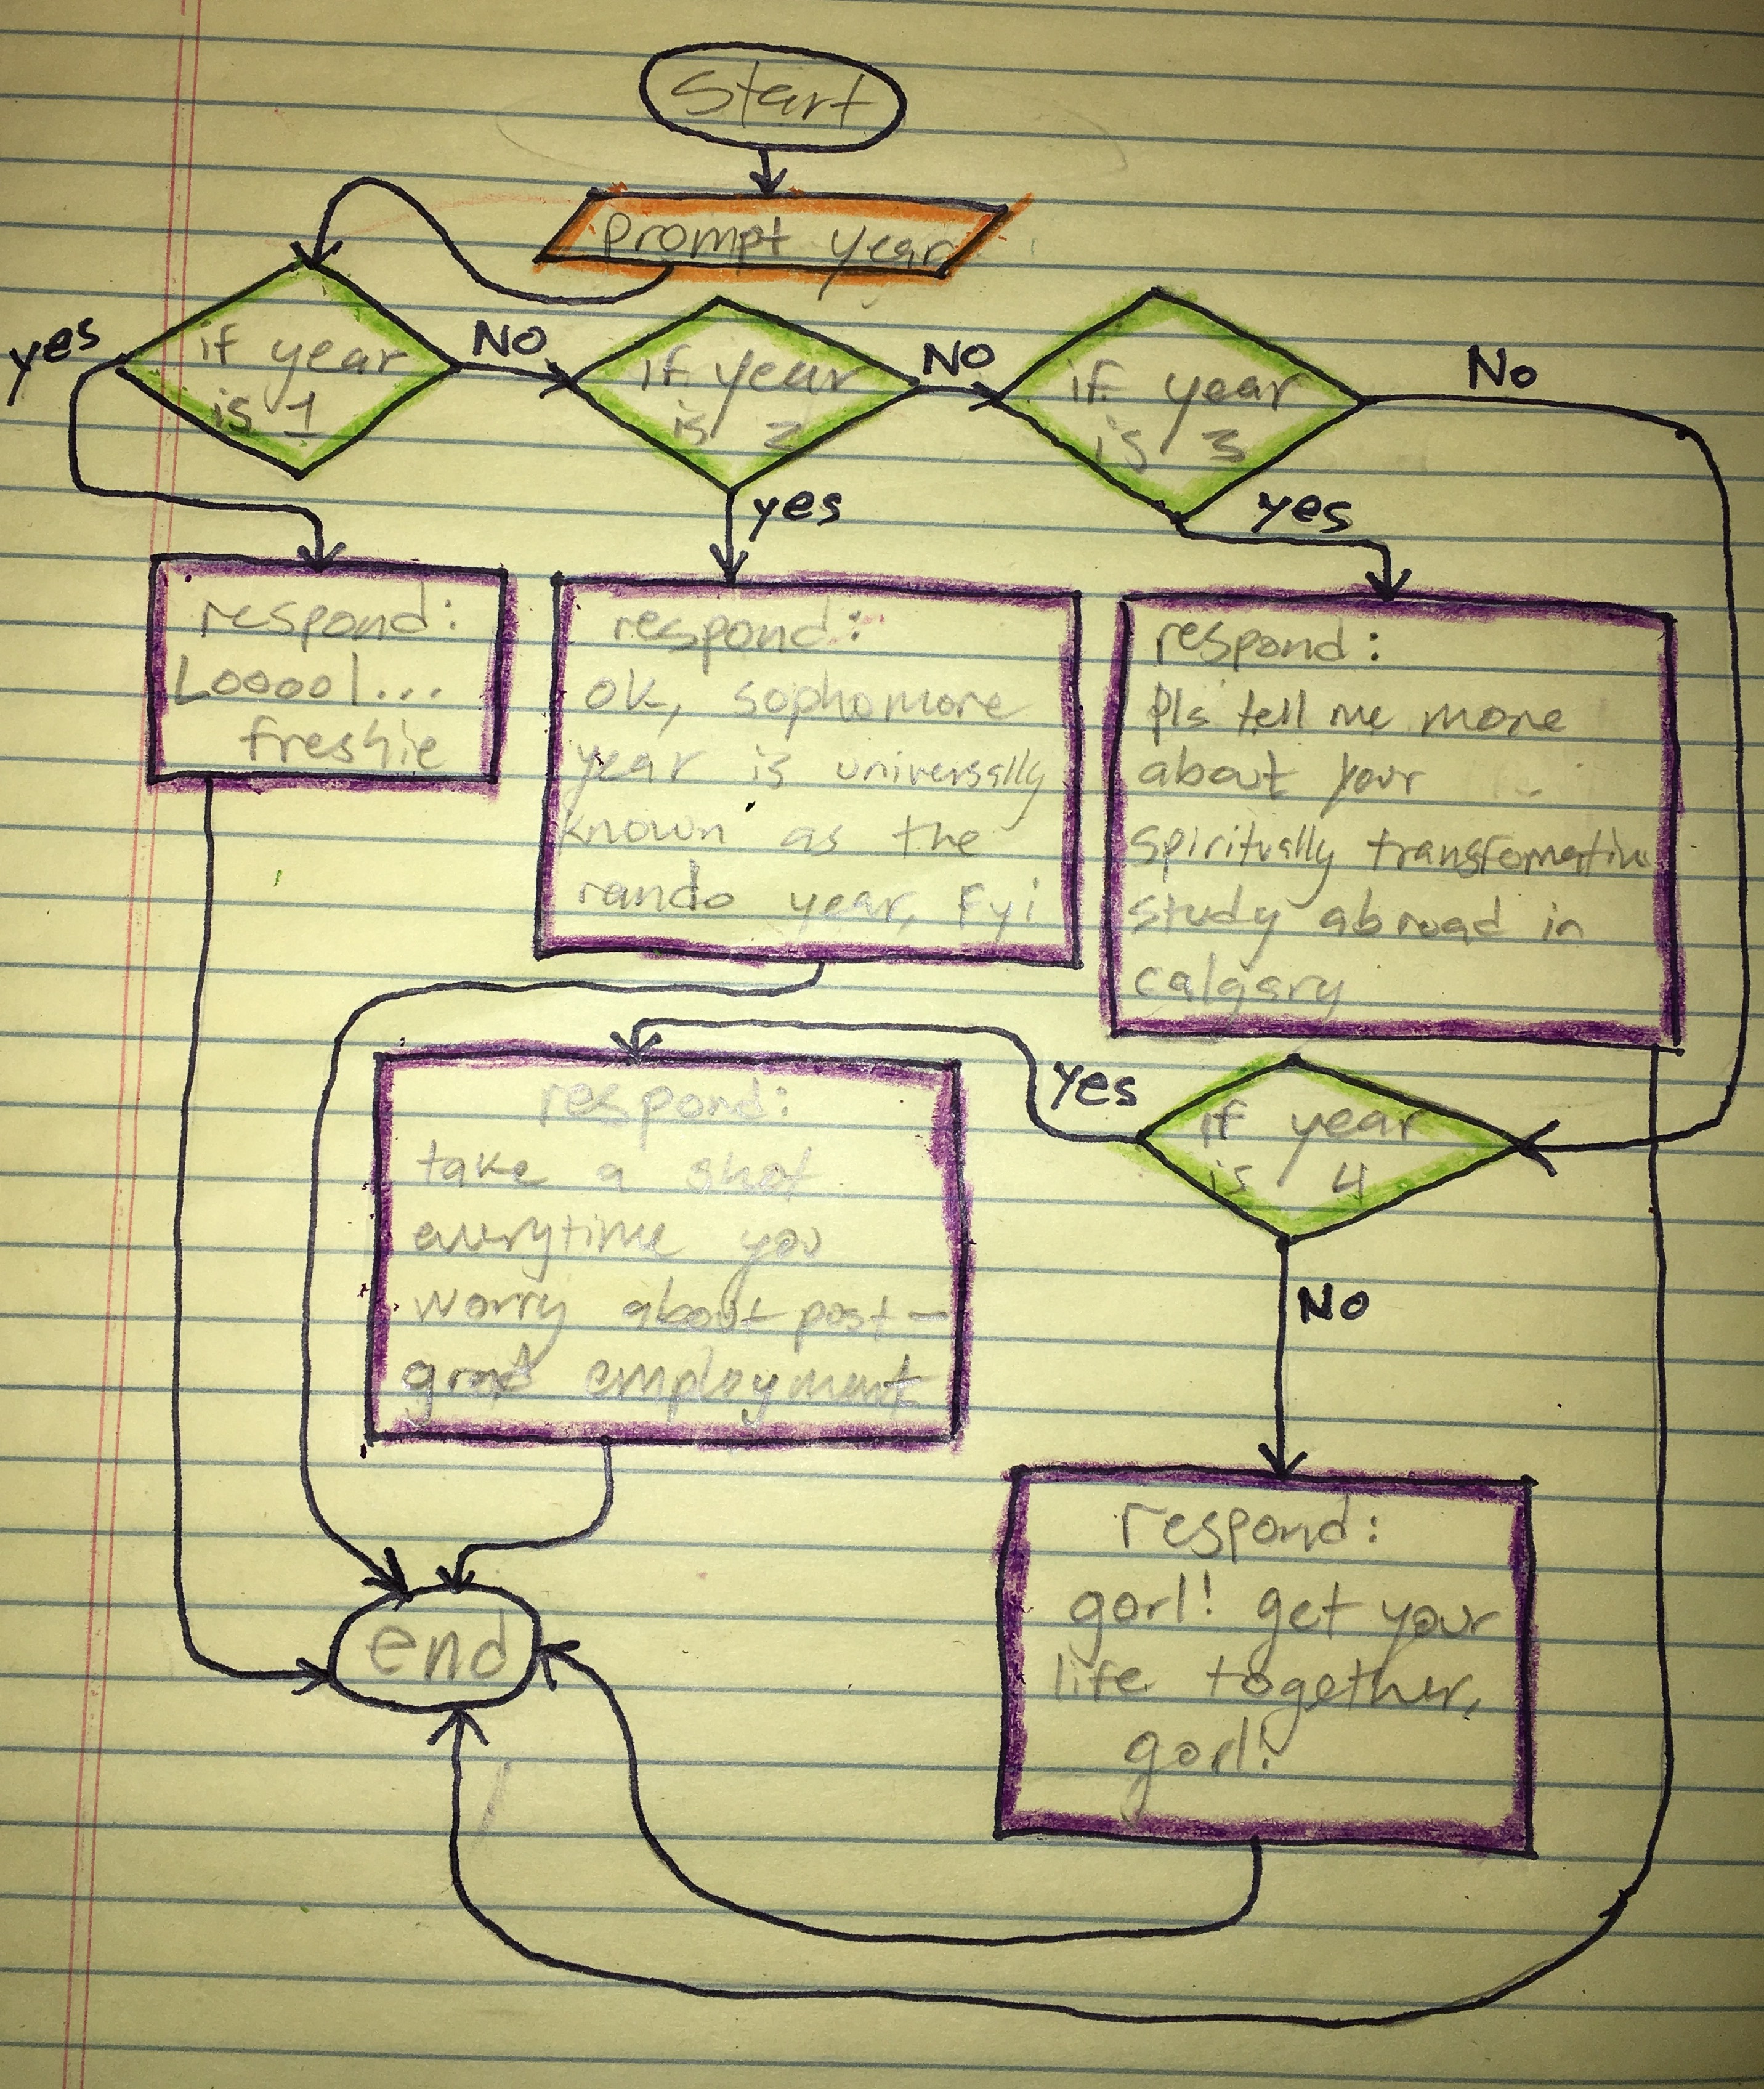 Start
Prompt year
if year
is 1
yes
No
if year
is 2
yes
No
if year
is 3
yes
No
respond:
Looool...
freshie
respond:
OK, sophomore
year is universally
known as the
rando year, Fyi
respond:
Pls tell me more
about your
spiritually transformative
study abroad in
calgary
if year
is 4
Yes
No
respond:
take a shot
everytime you
worry about post-
grad employment
respond:
gorl! get your
life together,
gorl!
end